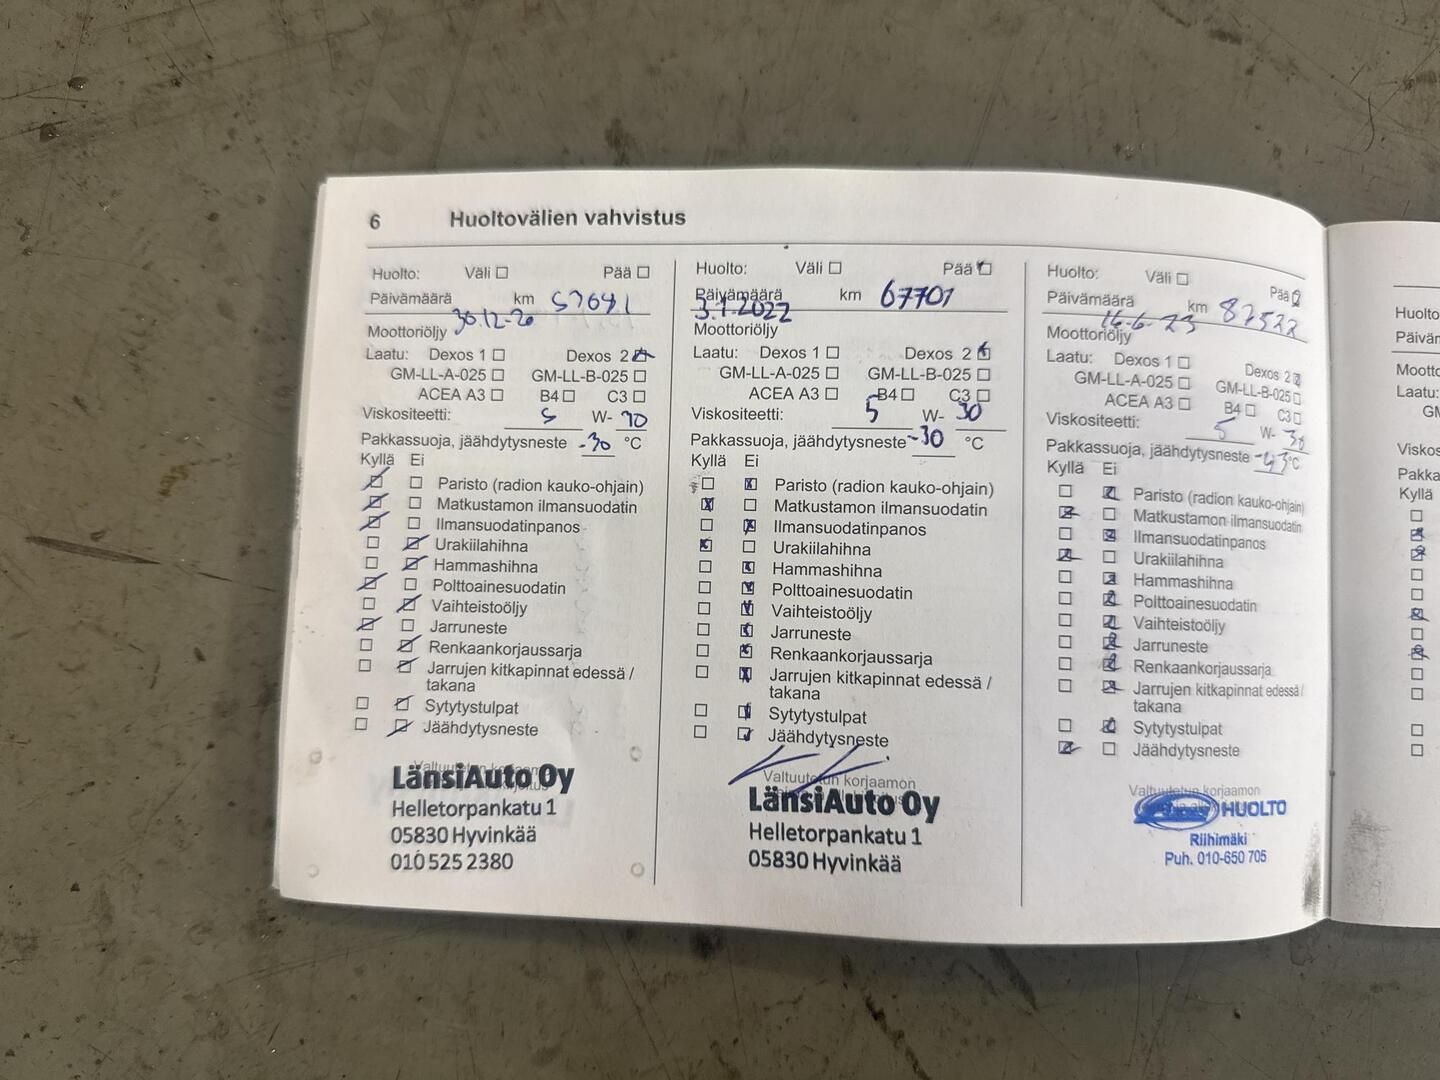 6 Huoltovälien vahvistus
Huolto: Väli Pää
Päivämäärä km
30.12-20
Moottoriöljy
Laatu: Dexos 1 Dexos 2
GM-LL-A-025 GM-LL-B-025
ACEA A3 B4 C3
Viskositeetti: 5 W- 30
Pakkassuoja, jäähdytysneste -30 °C
Kyllä Ei
Paristo (radion kauko-ohjain)
Matkustamon ilmansuodatin
Ilmansuodatinpanos
Urakiilahihna
Hammashihna
Polttoainesuodatin
Vaihteistoöljy
Jarruneste
Renkaankorjaussarja
Jarrujen kitkapinnat edessä /
takana
Sytytystulpat
Jäähdytysneste
LänsiAuto Oy
Helletorpankatu 1
05830 Hyvinkää
010 525 2380
Huolto: Väli Pää
Päivämäärä km 67701
3.1.2022
Moottoriöljy
Laatu: Dexos 1 Dexos 2
GM-LL-A-025 GM-LL-B-025
ACEA A3 B4 C3
Viskositeetti: 5 W- 30
Pakkassuoja, jäähdytysneste -30 °C
Kyllä Ei
Paristo (radion kauko-ohjain)
Matkustamon ilmansuodatin
Ilmansuodatinpanos
Urakiilahihna
Hammashihna
Polttoainesuodatin
Vaihteistoöljy
Jarruneste
Renkaankorjaussarja
Jarrujen kitkapinnat edessä /
takana
Sytytystulpat
Jäähdytysneste
Valtuutetun korjaamon
LänsiAuto Oy
Helletorpankatu 1
05830 Hyvinkää
Huolto: Väli Pää
Päivämäärä km 87522
16-6-23
Moottoriöljy
Laatu: Dexos 1 Dexos 2
GM-LL-A-025 GM-LL-B-025
ACEA A3 B4 C3
Viskositeetti: 5 W- 30
Pakkassuoja, jäähdytysneste -43 °C
Kyllä Ei
Paristo (radion kauko-ohjain)
Matkustamon ilmansuodatin
Ilmansuodatinpanos
Urakiilahihna
Hammashihna
Polttoainesuodatin
Vaihteistoöljy
Jarruneste
Renkaankorjaussarja
Jarrujen kitkapinnat edessä /
takana
Sytytystulpat
Jäähdytysneste
Valtuutetun korjaamon
HUOLTO
Riihimäki
Puh. 010-650 705
Huolto
Päiväm
Mootto
Laatu:
GM
Viskos
Pakka
Kyllä